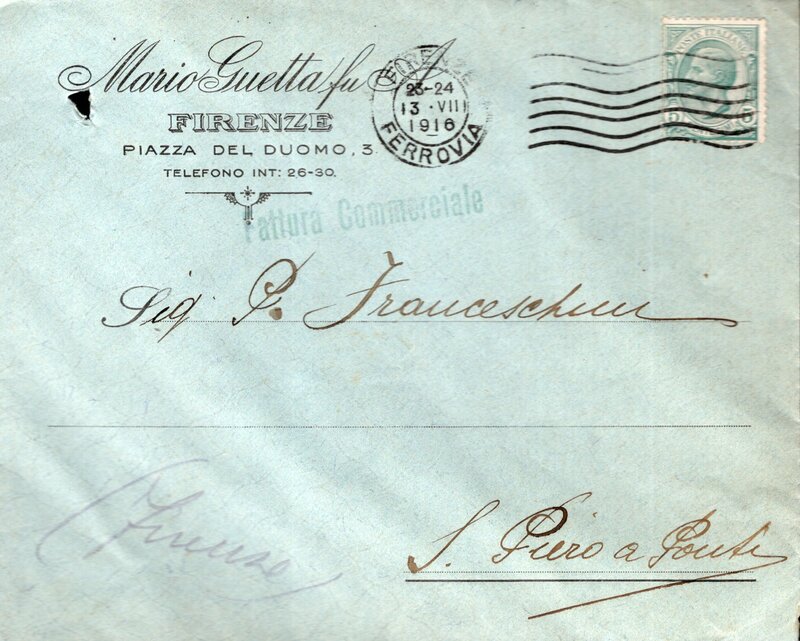 Mario Guetta fu A
FIRENZE
PIAZZA DEL DUOMO, 3
TELEFONO INT: 26-30.
FIRENZE
23-24
13 · VII
1916
FERROVIA
POSTE ITALIANE
5 5
Fattura Commerciale
Sig P. Franceschini
(Firenze)
S. Piero a Ponti